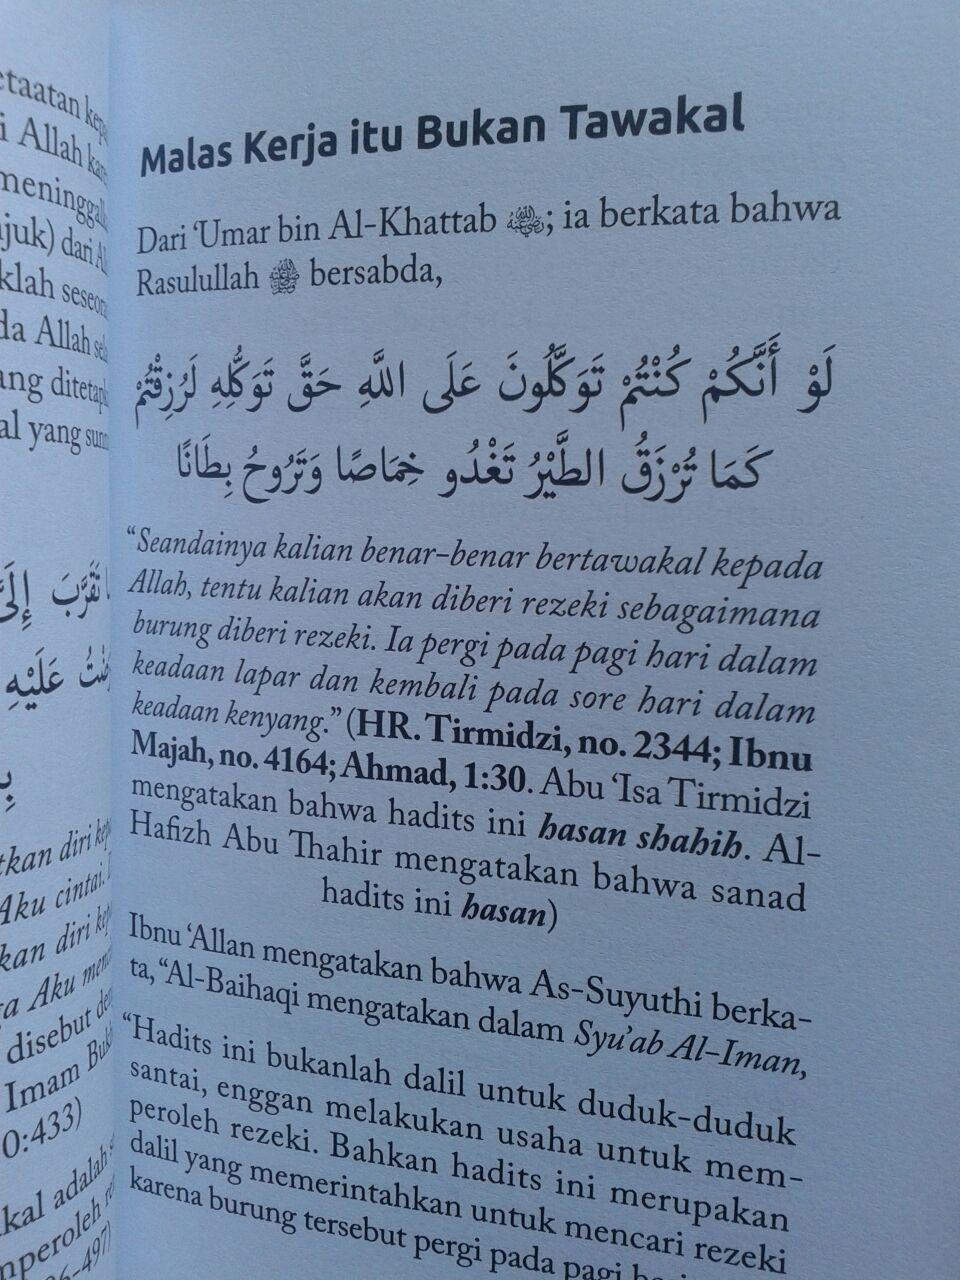 etaatan
i Allah
meninggal
juk) dari
klah
da Allah
ang
al yang
تَقَرَّبَ إِلَيَّ
عَلَيْهِ
tkan diri
Aku cintai.
kan diri
Aku
disebut
Imam
0:433)
kal adalah
mperoleh
-497)
Malas Kerja itu Bukan Tawakal
Dari ‘Umar bin Al-Khattab ؓ; ia berkata bahwa
Rasulullah ﷺ bersabda,
لَوْ أَنَّكُمْ كُنْتُمْ تَوَكَّلُونَ عَلَى اللَّهِ حَقَّ تَوَكُّلِهِ لَرُزِقْتُمْ
كَمَا تُرْزَقُ الطَّيْرُ تَغْدُو خِمَاصًا وَتَرُوحُ بِطَانًا
“Seandainya kalian benar-benar bertawakal kepada
Allah, tentu kalian akan diberi rezeki sebagaimana
burung diberi rezeki. Ia pergi pada pagi hari dalam
keadaan lapar dan kembali pada sore hari dalam
keadaan kenyang.” (HR. Tirmidzi, no. 2344; Ibnu
Majah, no. 4164; Ahmad, 1:30. Abu ‘Isa Tirmidzi
mengatakan bahwa hadits ini hasan shahih. Al-
Hafizh Abu Thahir mengatakan bahwa sanad
hadits ini hasan)
Ibnu ‘Allan mengatakan bahwa As-Suyuthi berka-
ta, “Al-Baihaqi mengatakan dalam Syu’ab Al-Iman,
“Hadits ini bukanlah dalil untuk duduk-duduk
santai, enggan melakukan usaha untuk mem-
peroleh rezeki. Bahkan hadits ini merupakan
dalil yang memerintahkan untuk mencari rezeki
karena burung tersebut pergi pada pagi